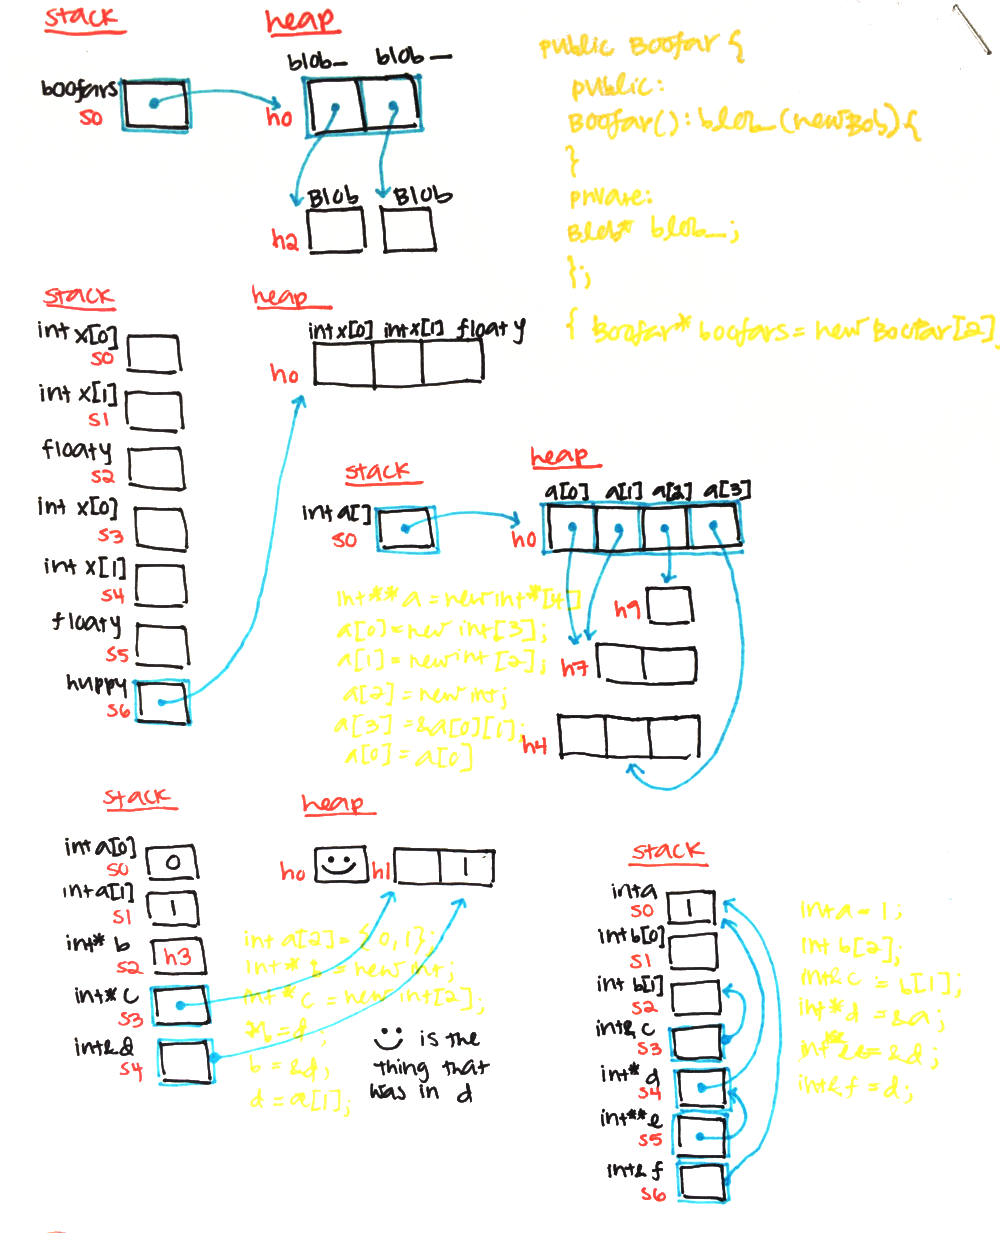 stack
heap
boofars
s0
blob_ blob_
h0
Blob Blob
h2
public Boofar {
public:
Boofar(): blob_(newBob) {
}
private:
Blob* blob_;
};
{ Boofar* boofars = new Boofar[2]
stack
heap
int x[0]
s0
int x[1]
s1
floaty
s2
int x[0]
s3
int x[1]
s4
floaty
s5
huppy
s6
int x[0] int x[1] floaty
h0
stack
heap
int a[]
s0
a[0] a[1] a[2] a[3]
h0
h9
h7
h4
int** a = new int*[4]
a[0] = new int[3];
a[1] = new int[2];
a[2] = new int;
a[3] = &a[0][1];
a[0] = a[0]
stack
heap
int a[0]
s0
0
int a[1]
s1
1
int* b
s2
h3
int* c
s3
int& d
s4
h0
h1
1
int a[2] = {0,1};
int* = new int;
int* c = new int[2];
= d;
b = &d;
d = a[1];
is the
thing that
was in d
stack
int a
s0
1
int b[0]
s1
int b[1]
s2
int& c
s3
int* d
s4
int** e
s5
int& f
s6
int a = 1;
int b[2];
int& c = b[1];
int* d = &a;
int = &d;
int& f = d;